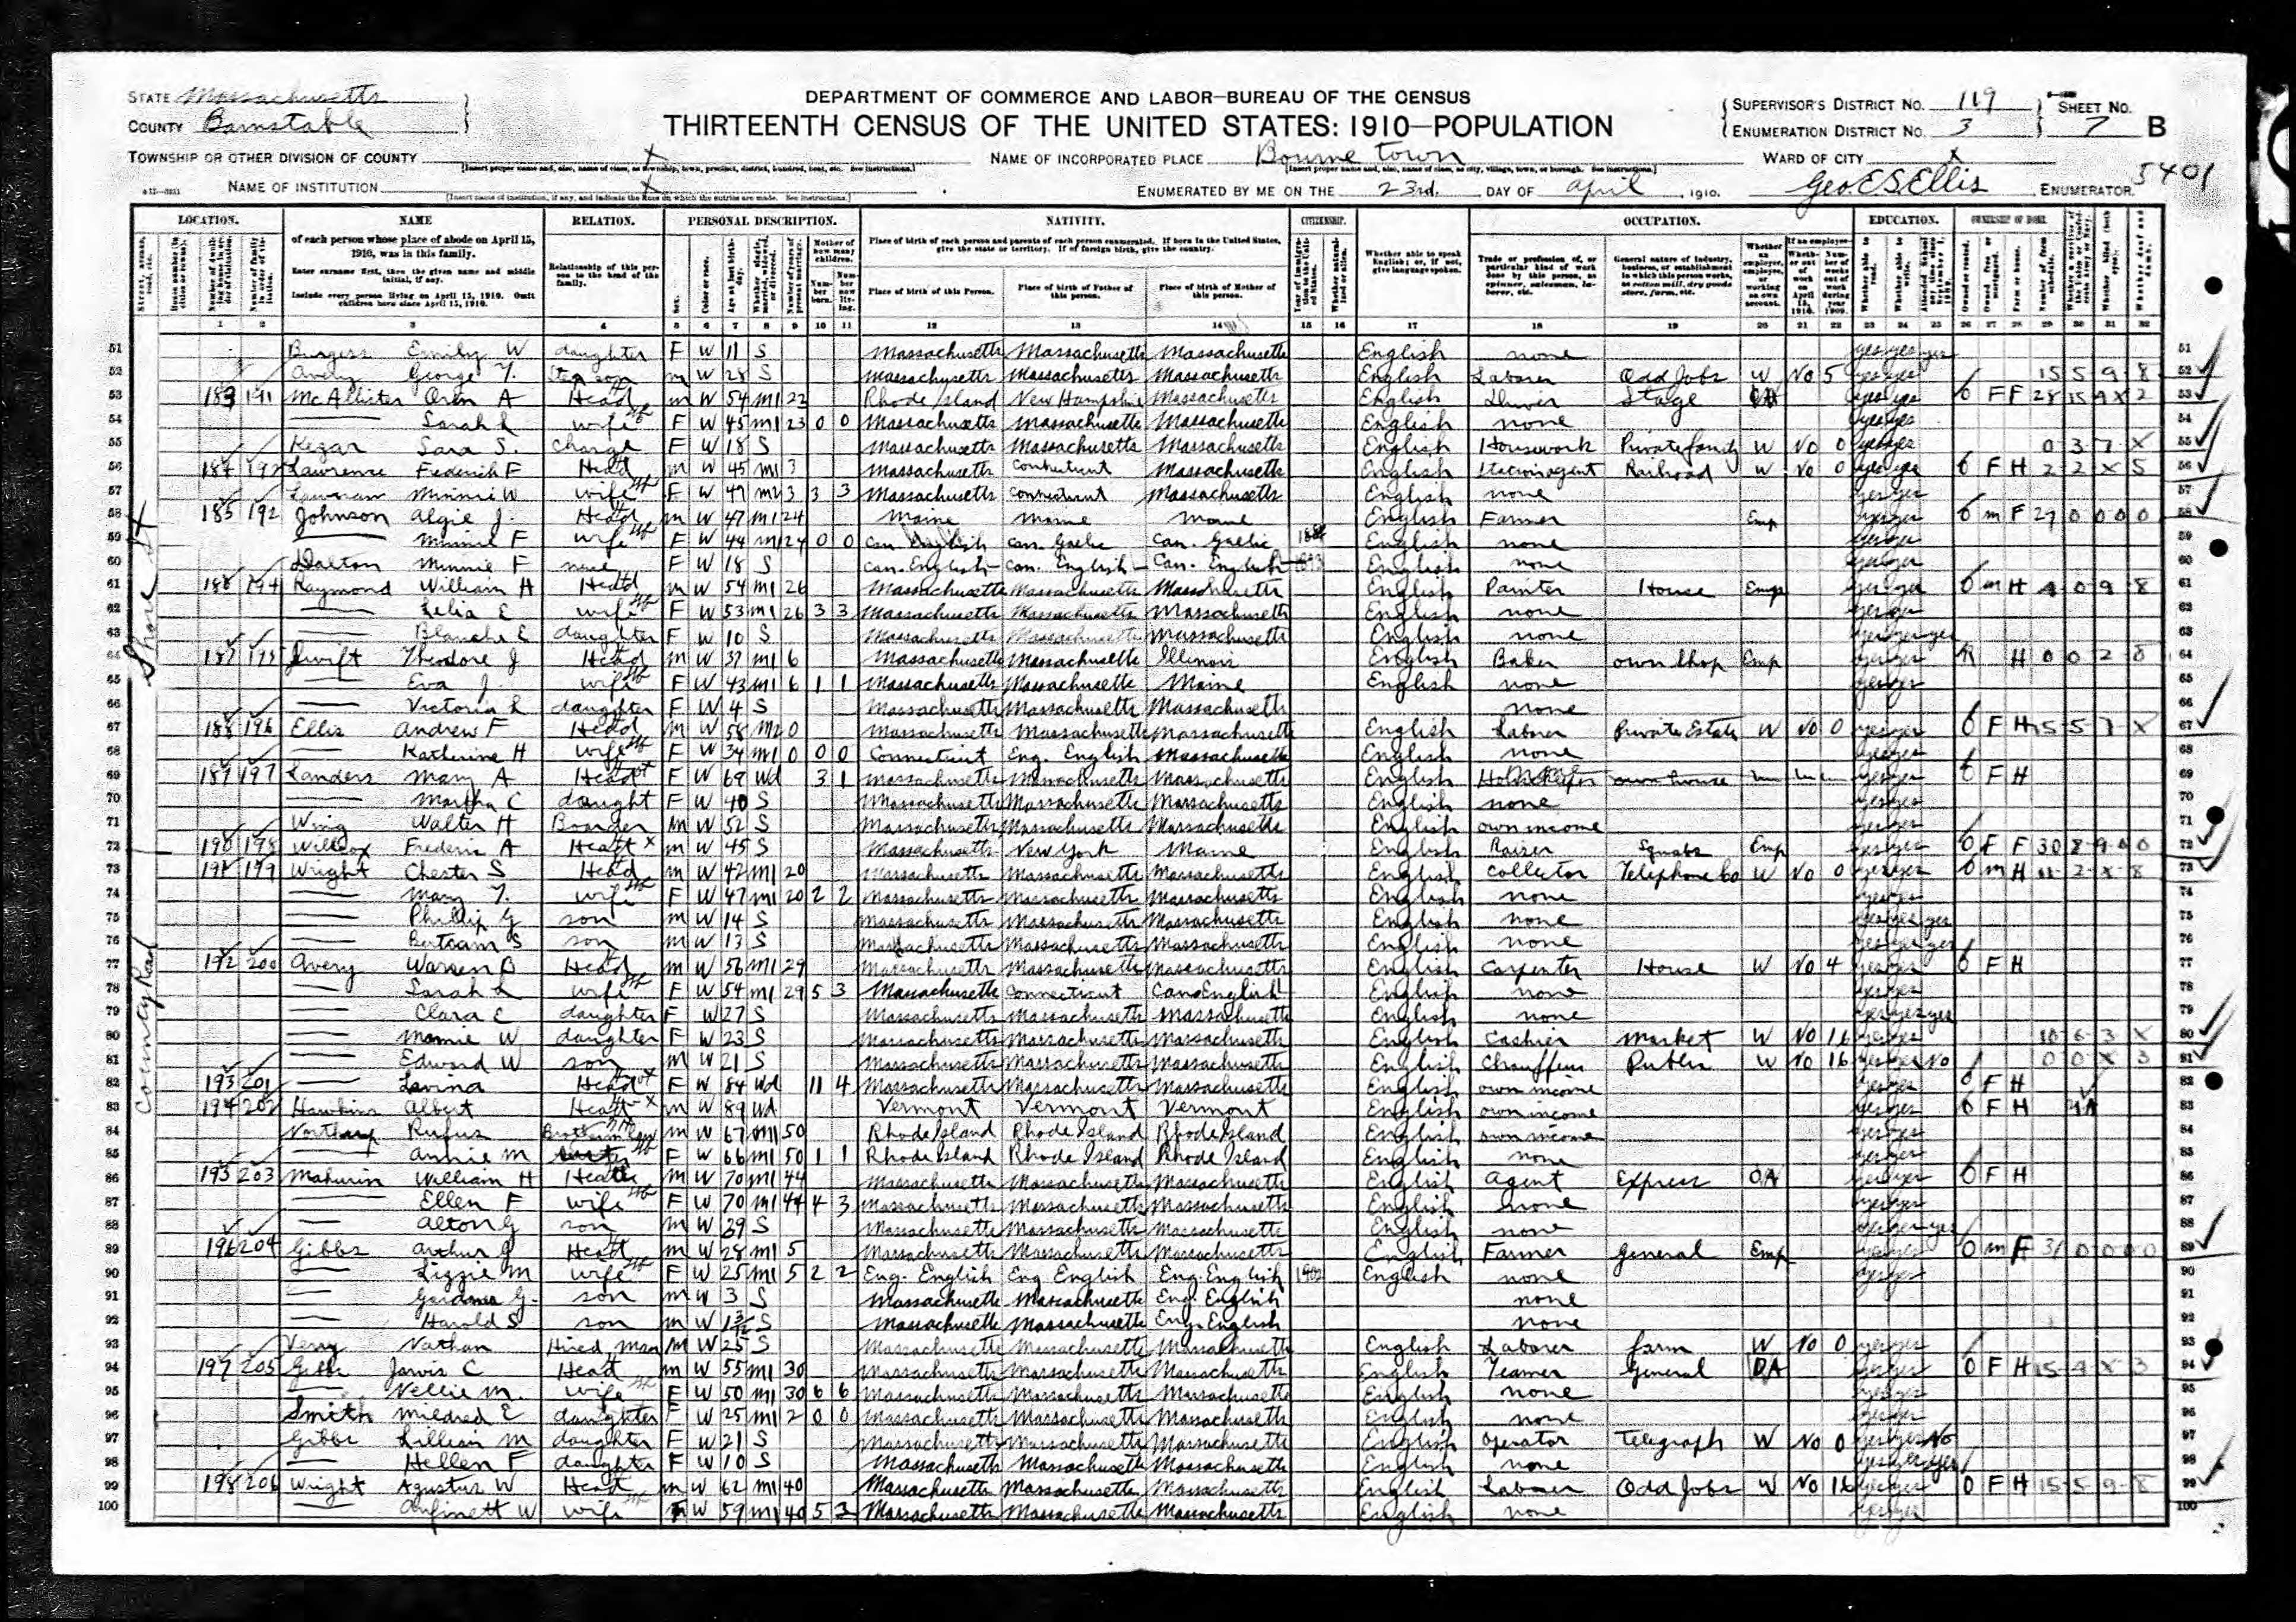 STATE Massachusetts
COUNTY Barnstable
DEPARTMENT OF COMMERCE AND LABOR—BUREAU OF THE CENSUS
THIRTEENTH CENSUS OF THE UNITED STATES: 1910—POPULATION
SUPERVISOR'S DISTRICT NO. 119
ENUMERATION DISTRICT NO. 3
SHEET NO. 7 B
TOWNSHIP OR OTHER DIVISION OF COUNTY X
NAME OF INCORPORATED PLACE Bourne town
WARD OF CITY X
5401
NAME OF INSTITUTION X
ENUMERATED BY ME ON THE 23rd. DAY OF April, 1910. Geo E S Ellis, ENUMERATOR.
LOCATION. NAME RELATION. PERSONAL DESCRIPTION. NATIVITY. CITIZENSHIP. OCCUPATION. EDUCATION. OWNERSHIP OF HOME.
of each person whose place of abode on April 15, 1910, was in this family.
Enter surname first, then the given name and middle initial, if any.
Include every person living on April 15, 1910. Omit children born since April 15, 1910.
Relationship of this person to the head of the family.
Place of birth of each person and parents of each person enumerated. If born in the United States, give the state or territory. If of foreign birth, give the country.
Place of birth of this Person. Place of birth of Father of this person. Place of birth of Mother of this person.
Whether able to speak English; or, if not, give language spoken.
1 2 3 4 5 6 7 8 9 10 11 12 13 14 15 16 17 18 19 20 21 22 23 24 25 26 27 28 29 30 31 32
Shore St
County Road
51 Burgess Emily W daughter F W 11 S Massachusetts Massachusetts Massachusetts English none yes yes yes 51
52 Avery George T. Step son m W 28 S Massachusetts Massachusetts Massachusetts English Laborer Odd Jobs W No 5 yes yes 15 5 9 8 52
53 183 191 McAllister Orin A Head m W 54 m1 23 Rhode Island New Hampshire Massachusetts English Driver Stage OA yes yes O F F 28 53
54 Sarah L wife F W 45 m1 23 0 0 Massachusetts Massachusetts Massachusetts English none yes yes 54
55 Kezar Sara S. Charge F W 18 S Massachusetts Massachusetts Massachusetts English Housework Private family W No 0 yes yes 0 3 7 X 55
56 184 192 Lawrence Frederick F Head m W 45 m1 3 Massachusetts Connecticut Massachusetts English Station agent Railroad W No 0 yes yes O F H 2 2 X 5 56
57 Minnie W wife F W 49 m2 3 3 3 Massachusetts Connecticut Massachusetts English none yes yes 57
58 185 192 Johnson Algie J. Head m W 47 m1 24 Maine Maine Maine English Farmer Emp yes yes O m F 29 0 0 0 0 58
59 Minnie F wife F W 44 m1 24 0 0 Can. English Can. Gaelic Can. Gaelic English none yes yes 59
60 Dalton Minnie F niece F W 18 S Can. English Can. English Can. English English none yes yes 60
61 186 194 Raymond William H Head m W 54 m1 26 Massachusetts Massachusetts Massachusetts English Painter House Emp yes yes O m H 4 0 9 8 61
62 Lelia E wife F W 53 m1 26 3 3 Massachusetts Massachusetts Massachusetts English none yes yes 62
63 Blanche E daughter F W 10 S Massachusetts Massachusetts Massachusetts English none yes yes yes 63
64 187 195 Swift Theodore J Head m W 37 m1 6 Massachusetts Massachusetts Illinois English Baker own shop Emp yes yes R H 0 0 2 8 64
65 Eva J. wife F W 43 m1 6 1 1 Massachusetts Massachusetts Maine English none yes yes 65
66 Victoria L daughter F W 4 S Massachusetts Massachusetts Massachusetts none 66
67 188 196 Ellis Andrew F Head m W 58 m2 0 Massachusetts Massachusetts Massachusetts English Laborer Private Estate W No 0 yes yes O F H 15 5 7 X 67
68 Katherine H wife F W 34 m1 0 0 0 Connecticut Eng. English Massachusetts English none yes yes 68
69 189 197 Landers Mary A Head F W 69 Wd 3 1 Massachusetts Massachusetts Massachusetts English own house yes yes O F H 69
70 Martha C daught F W 40 S Massachusetts Massachusetts Massachusetts English none yes yes 70
71 Wing Walter H Boarder m W 52 S Massachusetts Massachusetts Massachusetts English own income yes yes 71
72 190 198 Willcox Frederic A Head X m W 45 S Massachusetts New York Maine English Raiser Squabs Emp yes yes O F F 30 8 9 0 0 72
73 191 199 Wright Chester S Head m W 42 m1 20 Massachusetts Massachusetts Massachusetts English Collector Telephone Co W No 0 yes yes O m H 2 X 8 73
74 Mary T. wife F W 47 m1 20 2 2 Massachusetts Massachusetts Massachusetts English none yes yes 74
75 Phillip G son m W 14 S Massachusetts Massachusetts Massachusetts English none yes yes yes 75
76 Bertram S son m W 13 S Massachusetts Massachusetts Massachusetts English none yes yes yes 76
77 192 200 Avery Warren B Head m W 56 m1 29 Massachusetts Massachusetts Massachusetts English Carpenter House W No 4 yes yes O F H 77
78 Sarah L wife F W 54 m1 29 5 3 Massachusetts Connecticut Can English English none yes yes 78
79 Clara E daughter F W 27 S Massachusetts Massachusetts Massachusetts English none yes yes yes 79
80 Mamie W daughter F W 23 S Massachusetts Massachusetts Massachusetts English Cashier Market W No 16 yes yes 10 6 3 X 80
81 Edward W son m W 21 S Massachusetts Massachusetts Massachusetts English Chauffeur Public W No 16 yes yes No 0 0 X 3 81
82 193 201 Lavina Head F W 84 Wd 11 4 Massachusetts Massachusetts Massachusetts English own income yes yes O F H 82
83 194 202 Hawkins Albert Head X m W 89 Wd Vermont Vermont Vermont English own income yes yes O F H 83
84 Northup Rufus Brother in law m W 67 m1 50 Rhode Island Rhode Island Rhode Island English own income yes yes 84
85 Annie M sister F W 66 m1 50 1 1 Rhode Island Rhode Island Rhode Island English none yes yes 85
86 195 203 Mahurin William H Head m W 70 m1 44 Massachusetts Massachusetts Massachusetts English Agent Express OA yes yes O F H 86
87 Ellen F wife F W 70 m1 44 4 3 Massachusetts Massachusetts Massachusetts English none yes yes 87
88 Alton G son m W 39 S Massachusetts Massachusetts Massachusetts English none yes yes yes 88
89 196 204 Gibbs Arthur J Head m W 28 m1 5 Massachusetts Massachusetts Massachusetts English Farmer General Emp yes yes O m F 31 0 0 0 0 89
90 Lizzie M wife F W 25 m1 5 2 2 Eng. English Eng English Eng. English 1902 English none yes yes 90
91 Gardner G. son m W 3 S Massachusetts Massachusetts Eng. English none 91
92 Harold S son m W 1 3/12 S Massachusetts Massachusetts Eng. English none 92
93 Very Nathan Hired man m W 25 S Massachusetts Massachusetts Massachusetts English Laborer farm W No 0 yes yes 93
94 197 205 Gibbs Jarvis C Head m W 55 m1 30 Massachusetts Massachusetts Massachusetts English Teamer General OA yes yes O F H 15 4 X 3 94
95 Nellie M. wife F W 50 m1 30 6 6 Massachusetts Massachusetts Massachusetts English none yes yes 95
96 Smith Mildred E daughter F W 25 m1 2 0 0 Massachusetts Massachusetts Massachusetts English none yes yes 96
97 Gibbs Lillian M daughter F W 21 S Massachusetts Massachusetts Massachusetts English Operator Telegraph W No 0 yes yes No 97
98 Hellen F daughter F W 10 S Massachusetts Massachusetts Massachusetts English none yes yes yes 98
99 198 206 Wright Agustus W Head m W 62 m1 40 Massachusetts Massachusetts Massachusetts English Laborer Odd Jobs W No 16 yes yes O F H 15 5 9 8 99
100 W wife F W 59 m1 40 5 3 Massachusetts Massachusetts Massachusetts English none yes yes 100